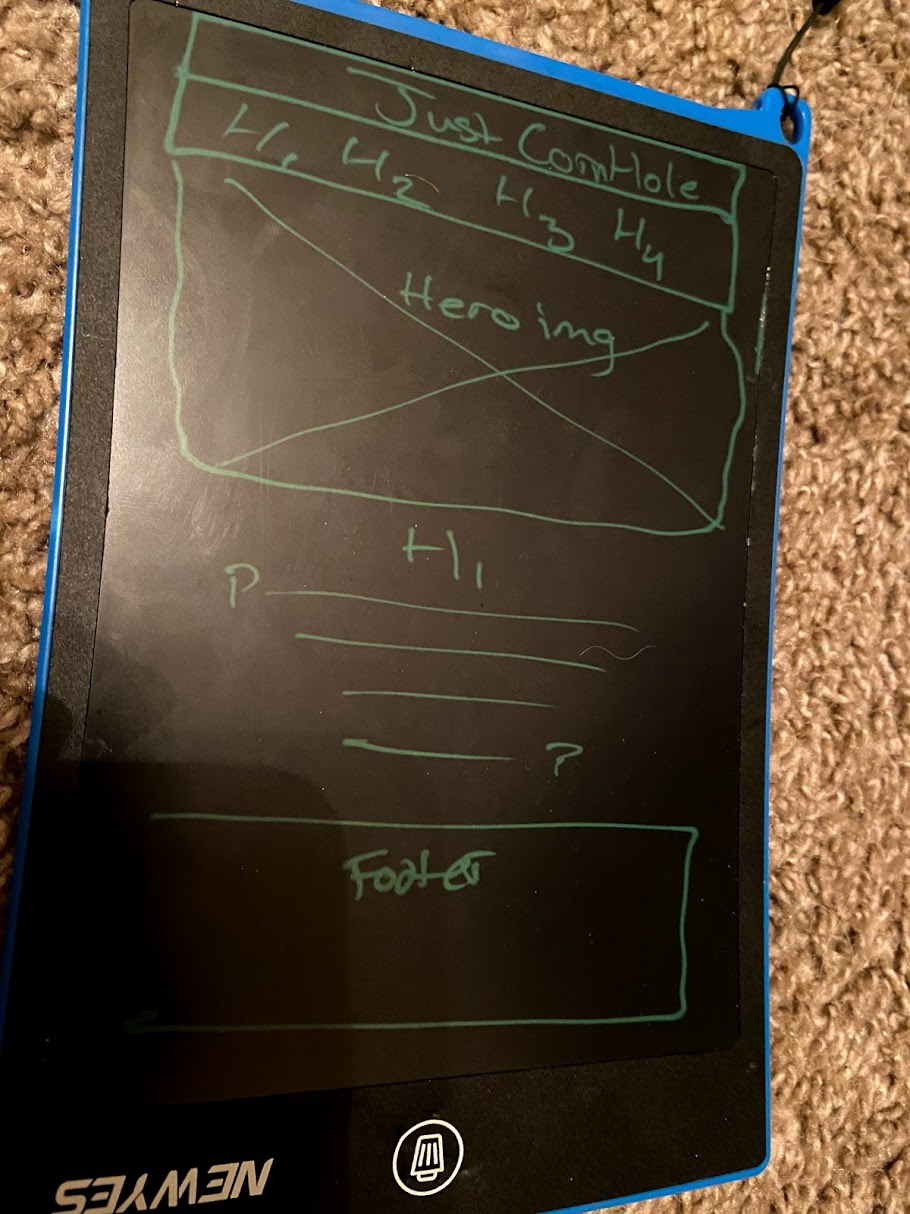 Just CornHole
H1 H2 H3 H4
Hero img
H1
P
P
Footer
NEWYES